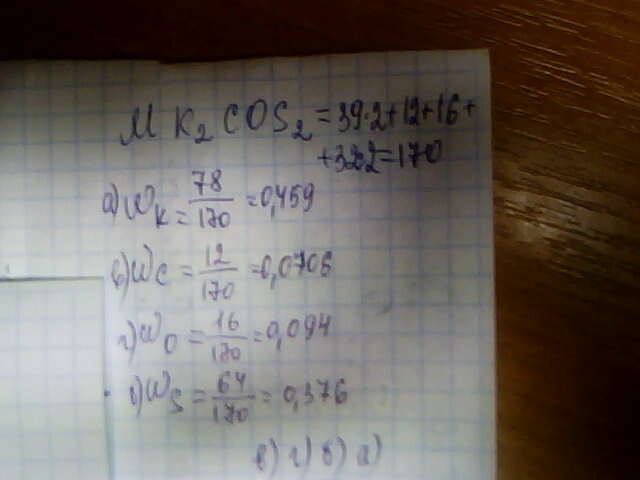 M K₂COS₂ = 39·2+12+16+
+32·2=170
а) W K = 78/170 = 0,459
в) W C = 12/170 = 0,0706
г) W O = 16/170 = 0,094
) W S = 64/170 = 0,376
в) г) б) а)